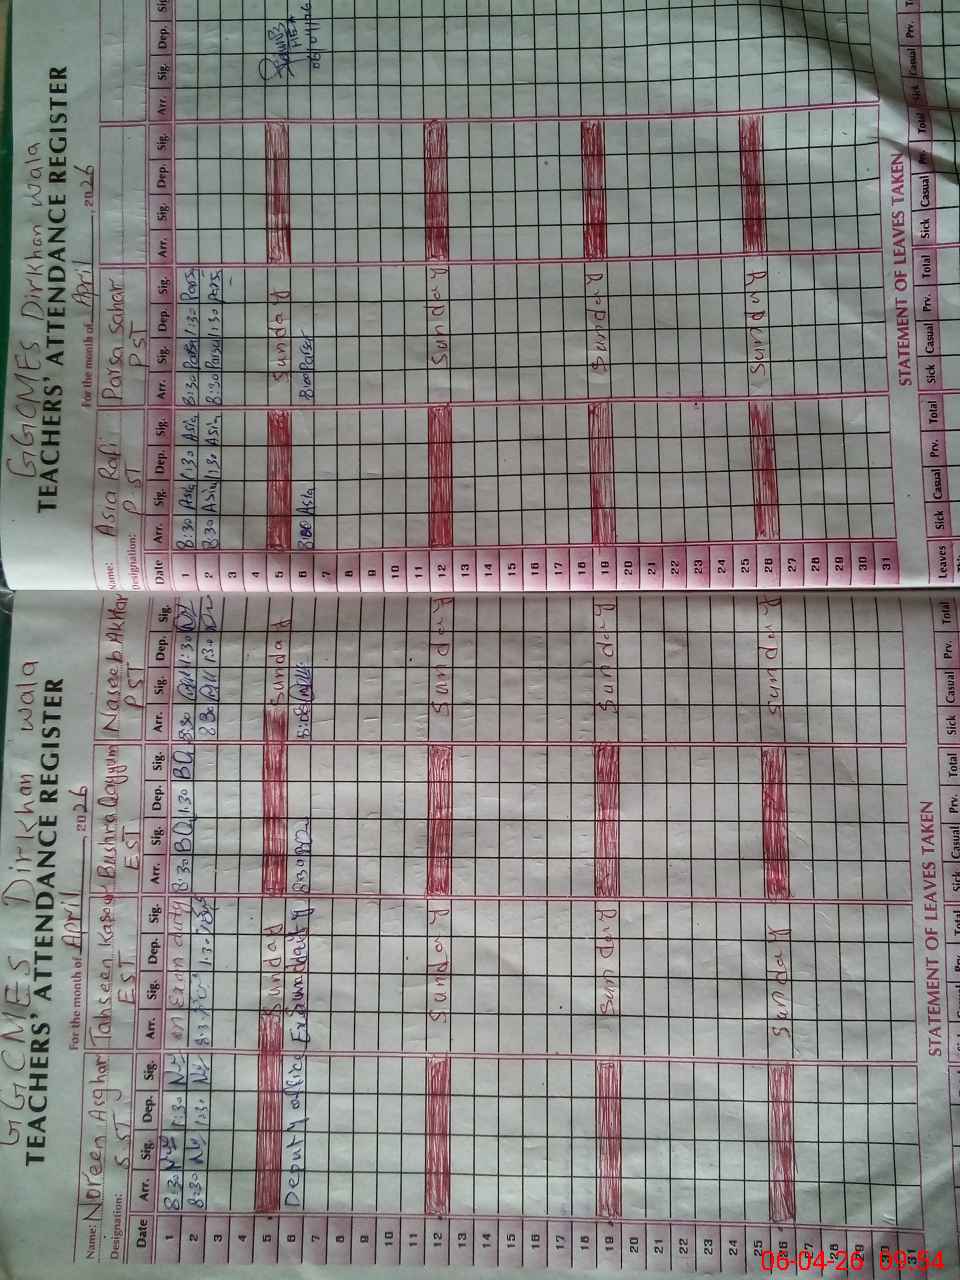 GGCMES Dirkhan wala
TEACHERS' ATTENDANCE REGISTER
For the month of April, 2026
Name: Noreen Asghar Tahseen Kasoor Bushra Qayyum Naseeb Akhtar
Designation: SST EST EST PST
Date Arr. Sig. Dep. Sig. Arr. Sig. Dep. Sig. Arr. Sig. Dep. Sig. Arr. Sig. Dep. Sig.
1 8:30 1:30 on Exam duty 8:30 BQ 1:30 BQ 8:30 1:30
2 8:30 1:30 8:30 1:30 8:30 1:30
3
4
5 Sunday Sunday
6 Deputy office Exam duty 8:30 BQ 8:08
7
8
9
10
11
12 Sunday Sunday
13
14
15
16
17
18
19 Sunday Sunday
20
21
22
23
24
25
26 Sunday Sunday
27
28
29
30
31
STATEMENT OF LEAVES TAKEN
Total Sick Casual Prv. Total Sick Casual Prv. Total
GGCMES Dirkhan wala
TEACHERS' ATTENDANCE REGISTER
For the month of April, 2026
Name: Asia Rafi Parsa Sahar
Designation: PST PST
Date Arr. Sig. Dep. Sig. Arr. Sig. Dep. Sig. Arr. Sig. Dep. Sig. Arr. Sig. Dep. Sig.
1 8:30 Asia 1:30 Asia 8:30 Parsa 1:30 Parsa
2 8:30 Asia 1:30 Asia 8:30 Parsa 1:30 Parsa
3
4
5 Sunday
6 8:00 Asia 8:00 Parsa
06/04/26
7
8
9
10
11
12 Sunday
13
14
15
16
17
18
19 Sunday
20
21
22
23
24
25
26 Sunday
27
28
29
30
31
STATEMENT OF LEAVES TAKEN
Leaves Sick Casual Prv. Total Sick Casual Prv. Total Sick Casual Prv. Total Sick Casual Prv. Total
06-04-26 09:54